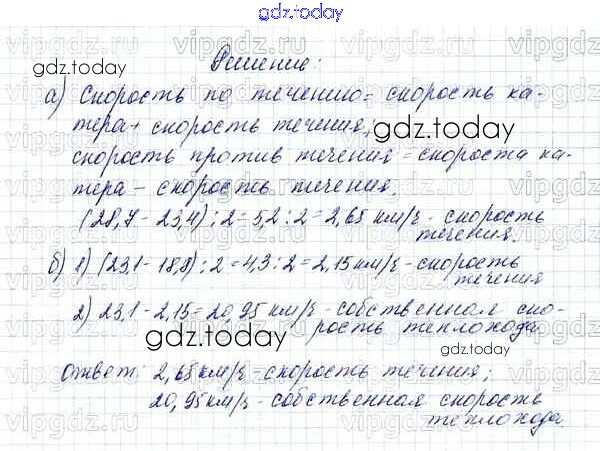 gdz.today
Решение:
а) Скорость по течению = скорость ка-
тера + скорость течения,
скорость против течения = скорости ка-
тера - скорость течения.
(28,7 - 23,4) : 2 = 5,2 : 2 = 2,65 км/ч - скорость
течения.
б) 1) (23,1 - 18,8) : 2 = 4,3 : 2 = 2,15 км/ч - скорость
течения
2) 23,1 - 2,15 = 20,95 км/ч - собственная ско-
рость теплохода
Ответ: 2,65 км/ч - скорость течения;
20,95 км/ч - собственная скорость
теплохода.
gdz.today
gdz.today
gdz.today
gdz.today
gdz.today
vipgdz.ru